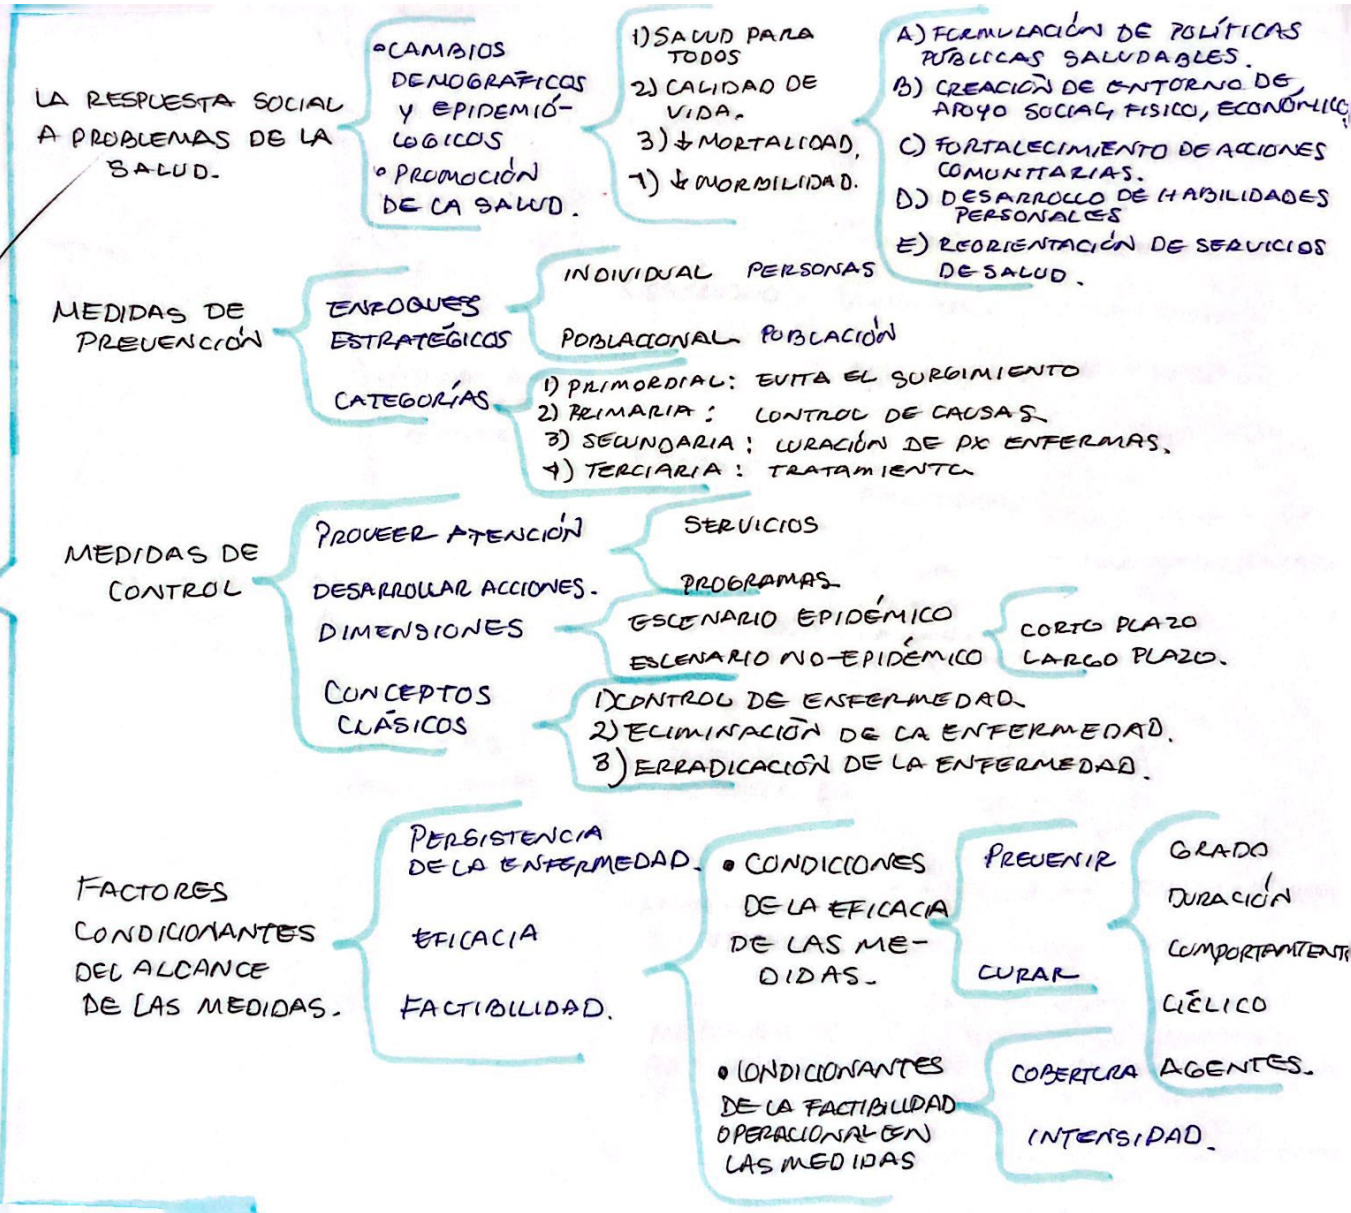 LA RESPUESTA SOCIAL
A PROBLEMAS DE LA
SALUD.
•CAMBIOS
DEMOGRÁFICOS
Y EPIDEMIÓ-
LOGICOS
•PROMOCIÓN
DE LA SALUD.
1) SALUD PARA
TODOS
2) CALIDAD DE
VIDA.
3) ↓ MORTALIDAD.
4) ↓ MORBILIDAD.
A) FORMULACIÓN DE POLÍTICAS
PÚBLICAS SALUDABLES.
B) CREACIÓN DE ENTORNO DE
APOYO SOCIAL, FISICO, ECONÓMICO,
C) FORTALECIMIENTO DE ACCIONES
COMUNITARIAS.
D) DESARROLLO DE HABILIDADES
PERSONALES
E) REORIENTACIÓN DE SERVICIOS
DE SALUD.
MEDIDAS DE
PREVENCIÓN
ENFOQUES
ESTRATÉGICOS
INDIVIDUAL PERSONAS
POBLACIONAL POBLACIÓN
CATEGORÍAS
1) PRIMORDIAL: EVITA EL SURGIMIENTO
2) PRIMARIA: CONTROL DE CAUSAS
3) SECUNDARIA: CURACIÓN DE PX ENFERMAS.
4) TERCIARIA: TRATAMIENTO
MEDIDAS DE
CONTROL
PROVEER ATENCIÓN
DESARROLLAR ACCIONES.
SERVICIOS
PROGRAMAS
DIMENSIONES
ESCENARIO EPIDÉMICO
ESCENARIO NO-EPIDÉMICO
CORTO PLAZO
LARGO PLAZO.
CONCEPTOS
CLÁSICOS
1) CONTROL DE ENFERMEDAD.
2) ELIMINACIÓN DE LA ENFERMEDAD.
3) ERRADICACIÓN DE LA ENFERMEDAD.
FACTORES
CONDICIONANTES
DEL ALCANCE
DE LAS MEDIDAS.
PERSISTENCIA
DE LA ENFERMEDAD.
EFICACIA
FACTIBILIDAD.
• CONDICIONES
DE LA EFICACIA
DE LAS ME-
DIDAS.
PREVENIR
CURAR
GRADO
DURACIÓN
COMPORTAMIENT
CÍCLICO
AGENTES.
• CONDICIONANTES
DE LA FACTIBILIDAD
OPERACIONAL EN
LAS MEDIDAS
COBERTURA
INTENSIDAD.